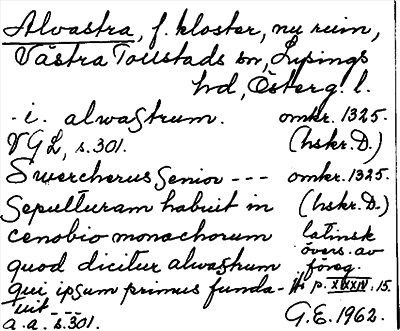 Alvastra, f. kloster, nu ruin,
Västra Tollstads sn, Lysings
hd, Österg. l.
- i. alwastrum. omkr. 1325.
VGL, s. 301. (hskr. D.)
Swercherus Senior --- omkr. 1325.
sepulturam habuit in (hskr. D.)
cenobio monachorum latinsk
quod dicitur alwastrum övers. av föreg.
qui ipsum primus funda- p. 15.
uit ---
a.a. s. 301. G.E. 1962.